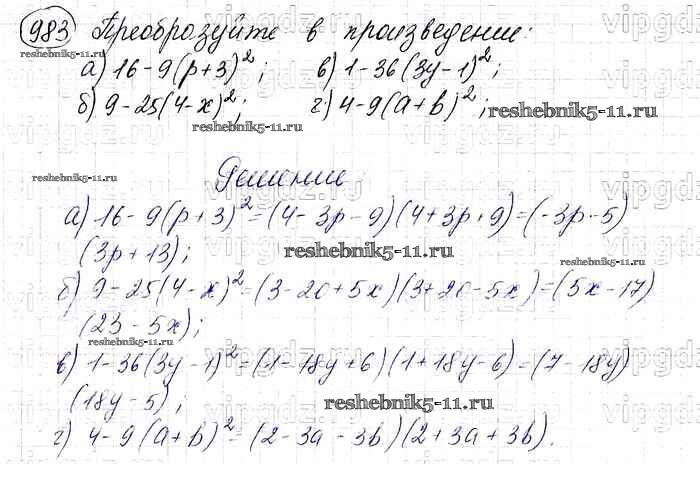 983 Преобразуйте в произведение:
а) 16-9(p+3)²; в) 1-36(3y-1)²;
б) 9-25(4-x)²; г) 4-9(a+b)²;
reshebnik5-11.ru
reshebnik5-11.ru
reshebnik5-11.ru
Решение
а) 16-9(p+3)²=(4-3p-9)(4+3p+9)=(-3p-5)
(3p+13);
reshebnik5-11.ru
reshebnik5-11.ru
б) 9-25(4-x)²=(3-20+5x)(3+20-5x)=(5x-17)
(23-5x);
reshebnik5-11.ru
в) 1-36(3y-1)²=(1-18y+6)(1+18y-6)=(7-18y)
(18y-5);
reshebnik5-11.ru
г) 4-9(a+b)²=(2-3a-3b)(2+3a+3b).